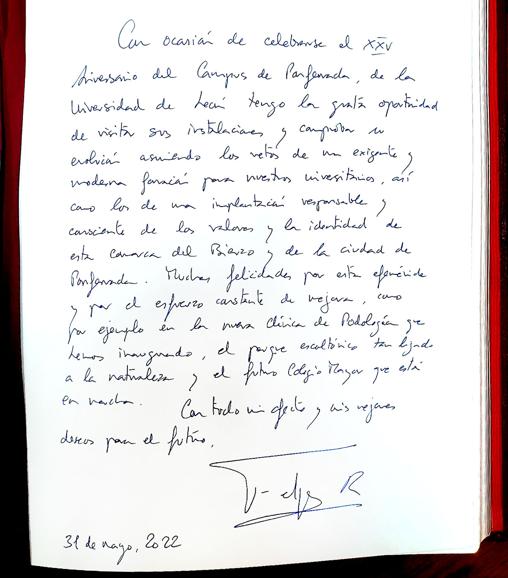 Con ocasión de celebrarse el XXV
Aniversario del Campus de Ponferrada, de la
Universidad de León tengo la grata oportunidad
de visitar sus instalaciones y comprobar su
evolución asumiendo los retos de un exigente y
moderna formación para nuestros universitarios, así
como los de una implantación responsable y
consciente de los valores y la identidad de
esta comarca del Bierzo y de la ciudad de
Ponferrada. Muchas felicidades por esta efeméride
y por el esfuerzo constante de mejora, como
por ejemplo en la nueva Clínica de Podología que
hemos inaugurado, el parque escultórico tan ligado
a la naturaleza y el futuro Colegio Mayor que está
en marcha.
Con todo mi afecto y mis mejores
deseos para el futuro,
Felipe R
31 de mayo, 2022